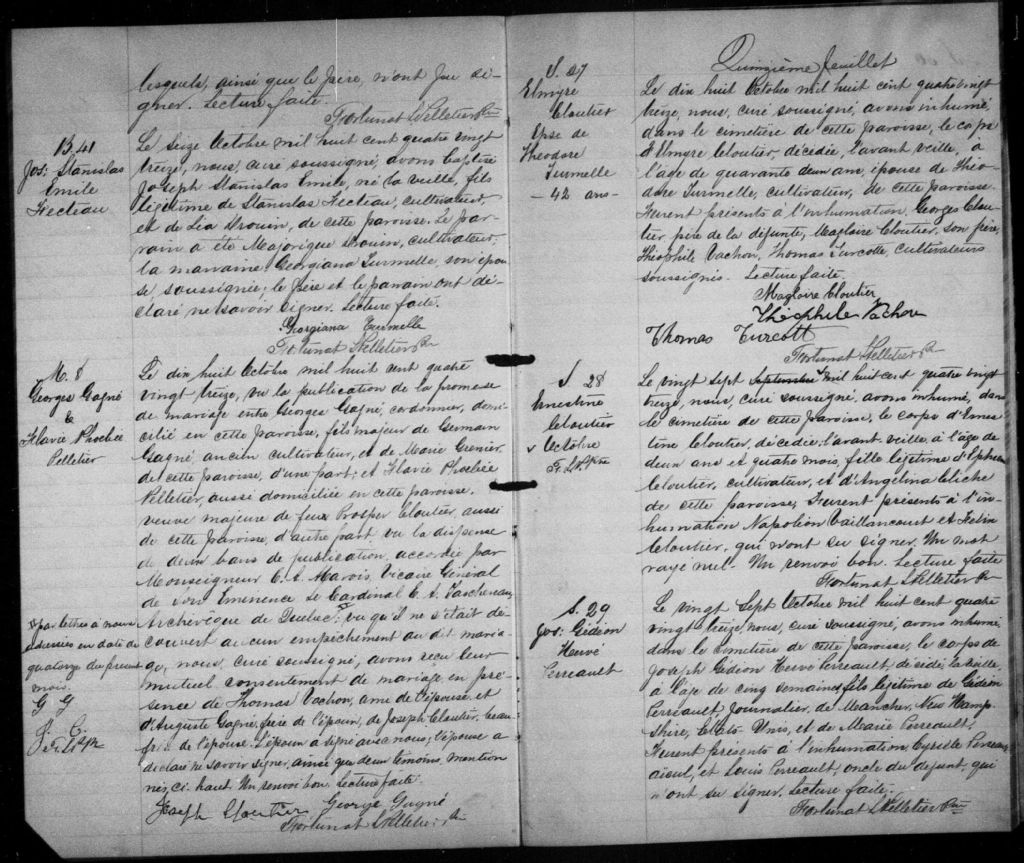 lesquels, ainsi que le père, n'ont su si-
gner. Lecture faite.
Fortunat S Pelletier Ptre
B. 41
Jos: Stanislas
Emile
Fecteau
Le seize Octobre mil huit cent quatre vingt
treize, nous, curé soussigné, avons baptisé
Joseph Stanislas Emile, né la veille, fils
légitime de Stanislas Fecteau, cultivateur,
et de Léa Drouin, de cette paroisse. Le par-
rain a été Majorique Drouin, cultivateur;
la marraine, Georgiana Turmelle, son épou-
se, soussignée; le père et le parrain ont dé-
claré ne savoir signer. Lecture faite.
Georgiana Turmelle
Fortunat S Pelletier Ptre
M. 8
Georges Gagné
&
Flavie Phoebée
Pelletier
Le dix huit Octobre mil huit cent quatre
vingt treize, vu la publication de la promesse
de mariage entre Georges Gagné, cordonnier, domi-
cilié en cette paroisse, fils majeur de Germain
Gagné, ancien cultivateur, et de Marie Grenier,
de cette paroisse, d'une part; et Flavie Phoebée
Pelletier, aussi domiciliée en cette paroisse,
veuve majeure de feu Prosper Cloutier, aussi
de cette paroisse, d'autre part, vu la dispense
de deux bans de publication, accordée par
Monseigneur C. A. Marois, Vicaire Général
de Son Eminence le Cardinal E. A. Taschereau
Archévêque de Québec; vu qu'il ne s'était dé-
couvert aucun empêchement au dit maria-
ge, nous, curé soussigné, avons reçu leur
mutuel consentement de mariage en pré-
sence de Thomas Vachon, ami de l'épouse, et
d'Auguste Gagné, frère de l'époux, de Joseph Cloutier, beau
frère de l'épouse. L'époux a signé avec nous; l'épouse a
déclaré ne savoir signer, ainsi que deux témoins, mention
nés ci-haut. Un renvoi bon. Lecture faite.
Joseph Cloutier George Gagné
Fortunat S Pelletier Ptre
par lettre à nous
adressée en date du
quatorze du présent
mois.
G G
J. C.
F. S. P. Ptre
Quinzième feuillet
S. 27
Elmyre
Cloutier
Epse de
Théodore
Turmelle
- 42 ans -
Le dix huit Octobre mil huit cent quatre vingt
treize, nous, curé soussigné, avons inhumé,
dans le cimetière de cette paroisse, le corps
d'Elmyre Cloutier, décédée, l'avant veille, à
l'age de quarante deux ans, épouse de Théo-
dore Turmelle, cultivateur, de cette paroisse.
Furent présents à l'inhumation, Georges Clou-
tier, père de la défunte, Magloire Cloutier, son frère,
Théophile Vachon, Thomas Turcotte, cultivateurs
soussignés. Lecture faite.
Magloire Cloutier
Théophile Vachon
Thomas Turcott
Fortunat S Pelletier Ptre
S. 28
Ernestine
Cloutier
v Octobre
F. S. P. Ptre
Le vingt sept Septembre mil huit cent quatre vingt
treize, nous, curé soussigné, avons inhumé, dans
le cimetière de cette paroisse, le corps d'Ernes
tine Cloutier, décédée, l'avant veille, à l'âge de
deux ans et quatre mois, fille légitime d'Ephrem
Cloutier, cultivateur, et d'Angelina Cliche
de cette paroisse, Furent présents à l'in-
humation Napoléon Vaillancourt et
Cloutier, qui n'ont su signer. Un mot
rayé nul. Un renvoi bon. Lecture faite
Fortunat S Pelletier Ptre
S. 29
Jos: Gédéon
Hervé
Perreault
Le vingt Sept Octobre mil huit cent quatre
vingt treize, nous, curé soussigné, avons inhumé,
dans le cimetière de cette paroisse, le corps de
Joseph Gédéon Hervé Perreault, décédé, la veille,
à l'age de cinq semaines, fils légitime de Gédéon
Perreault, Journalier, de Manches, New Hamp-
shire, Etats Unis, et de Marie Perreault.
Furent présents à l'inhumation, Cyrille Perreau
aïeul, et Louis Perreault, oncle du défunt, qui
n'ont su signer. Lecture faite.
Fortunat S Pelletier Ptre